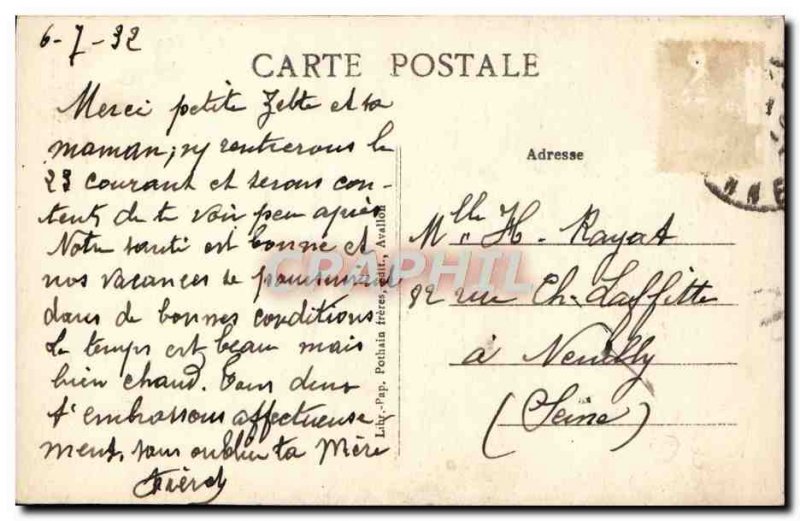 6-7-32
CARTE POSTALE
Merci petite et sa
maman; ns rentrerons le
23 courant et serons con-
tents de te voir peu après
Notre santé est bonne et
nos vacances se poursuivent
dans de bonnes conditions
Le temps est beau mais
bien chaud. Tous deux
t'embrassons affectueuse
ment, sans oublier ta Mère
Adresse
Mlle H. Rayat
82 rue Ch. Laffitte
à Neuilly
(Seine)
Libr.-Pap. Pothain frères, édit., Avallon
CPAPHIL